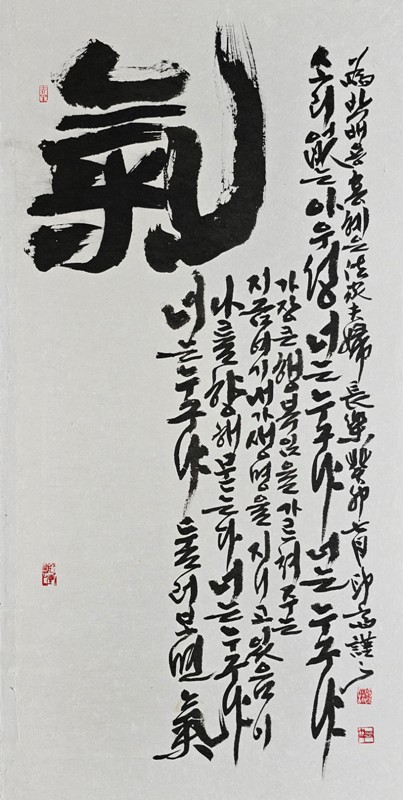 氣
너는 누구냐 둘러보면 氣
나를 향해 묻는다 너는 누구냐
지금 여기 내가 생명을 지니고 있음이
가장 큰 행복임을 가르쳐주는
소리없는 아우성 너는 누구냐 너는 누구냐
為 홍혜은 法家夫婦 長樂 癸卯 七月 謹